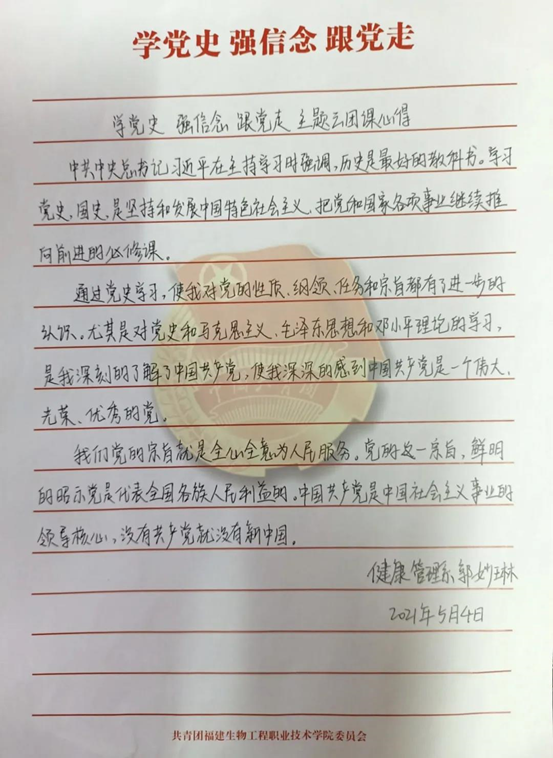 学党史 强信念 跟党走
学党史 强信念 跟党走 主题云团课心得
中共中央总书记习近平在主持学习时强调,历史是最好的教科书。学习
党史、国史,是坚持和发展中国特色社会主义、把党和国家各项事业继续推
向前进的必修课。
通过党史学习,使我对党的性质、纲领、任务和宗旨都有了进一步的
认识。尤其是对党史和马克思主义、毛泽东思想和邓小平理论的学习,
是我深刻的了解了中国共产党,使我深深的感到中国共产党是一个伟大、
光荣、优秀的党。
我们党的宗旨就是全心全意为人民服务。党的这一宗旨,鲜明
的昭示党是代表全国各族人民利益的。中国共产党是中国社会主义事业的
领导核心,没有共产党就没有新中国。
健康管理系 郭妙琳
2021年5月4日
共青团福建生物工程职业技术学院委员会